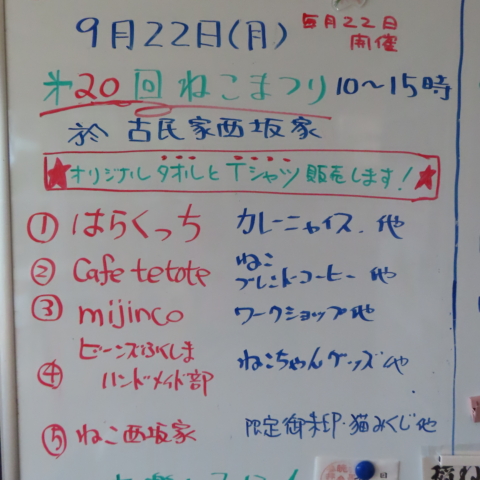 9月22日(月)
毎月22日
開催
㐧20回 ねこまつり 10～15時
於 古民家西坂家
★オリジナルタオルとTシャツ販売します!★
① はらくっち カレーニャイス.他
② Cafe tetote ねこ
ブレンドコーヒー 他
③ mijinco ワークショップ他
④ ビーンズふくしま
ハンドメイド部 ねこちゃんグッズ 他
⑤ ねこ西坂家 限定御朱印・猫みくじ他